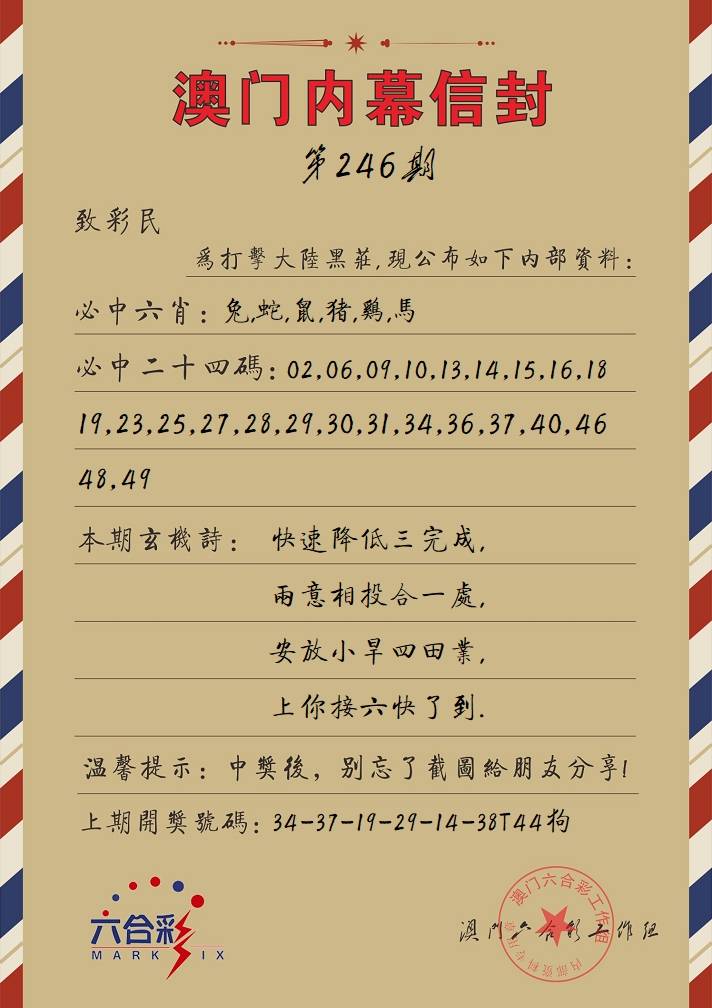 澳门内幕信封
第246期
致彩民
爲打擊大陸黑莊,現公布如下内部資料:
必中六肖: 兔,蛇,鼠,猪,鷄,馬
必中二十四碼: 02,06,09,10,13,14,15,16,18
19,23,25,27,28,29,30,31,34,36,37,40,46
48,49
本期玄機詩: 快速降低三完成,
兩意相投合一處,
安放小早四田業,
上你接六快了到.
温馨提示: 中獎後, 别忘了截圖給朋友分享!
上期開獎號碼: 34-37-19-29-14-38T44狗
六合彩
MARK SIX
澳门六合彩工作组
澳门六合彩工作组
内部资料专用章